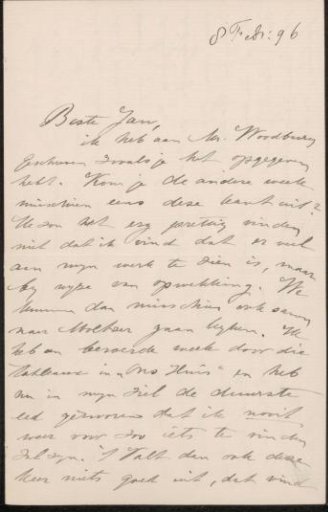 8 Febr: 96
Beste Jan,
ik heb aan Mr. Woodbury
geschreven zooals je het opgegeven
hebt. Kom je de andere week
misschien eens deze kant uit?
Ik zou het erg prettig vinden
niet dat ik vind dat er veel
aan mijn werk te zien is, maar
bij wijze van opwekking. We
kunnen dan misschien ook samen
naar gaan kijken. Ik
heb en beroerde week door die
in "Ons Huis" en heb
nu in mijn ziel de duurste
eed gezworen dat ik nooit
weer voor zoo iets te vinden
zal zyn. Valt dan ook deze
keer niets goed uit, dat vind